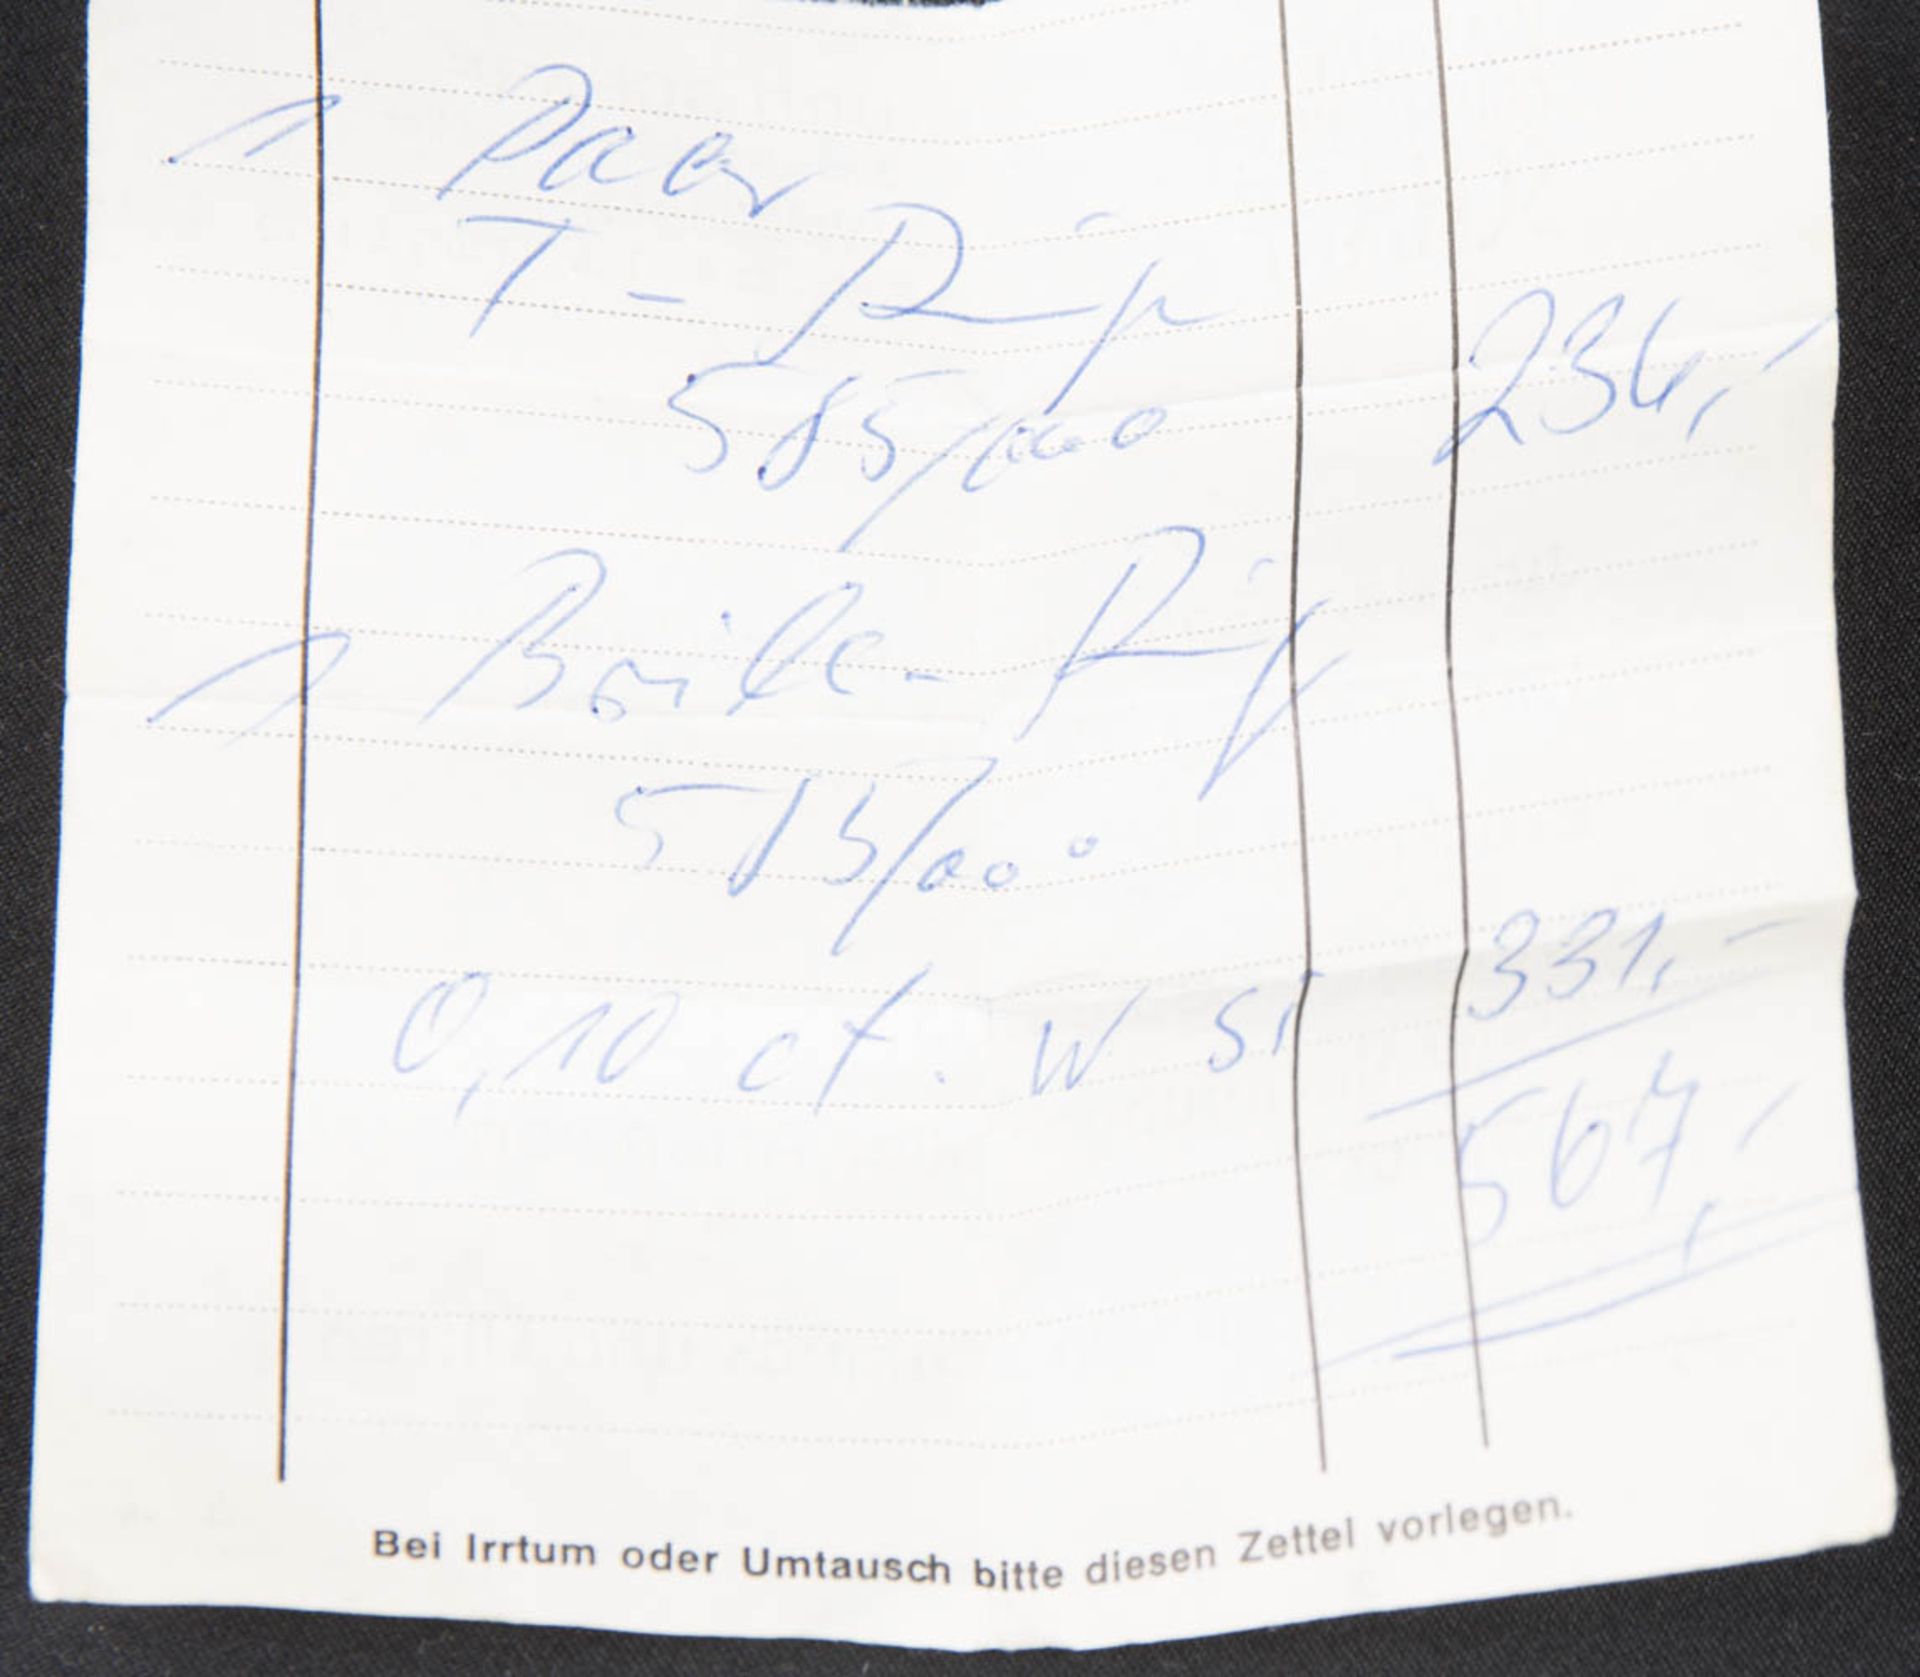 1 Paar
T-Ringe
585/000 236,-
1 Brill.-Ring
585/000
0,10 ct. W SI 331,-
567,-
Bei Irrtum oder Umtausch bitte diesen Zettel vorlegen.